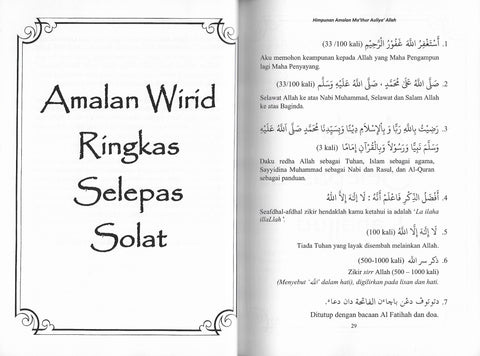 Amalan Wirid
Ringkas
Selepas
Solat
Himpunan Amalan Ma'thur Auliya' Allah
1. أَسْتَغْفِرُ اللهَ غَفُوْرُ الرَّحِيْمِ (33 /100 kali)
Aku memohon keampunan kepada Allah yang Maha Pengampun
lagi Maha Penyayang.
2. صَلَّى اللهُ عَلَى مُحَمَّدٍ ، صَلَّى اللهُ عَلَيْهِ وَسَلَّمَ (33/100 kali)
Selawat Allah ke atas Nabi Muhammad, Selawat dan Salam Allah
ke atas Baginda.
3. رَضِيْتُ بِاللهِ رَبًّا وَ بِالْإِسْلَامِ دِيْنًا وَبِسَيِّدِنَا مُحَمَّدٍ صَلَّى اللهُ عَلَيْهِ
وَسَلَّمَ نَبِيًّا وَرَسُوْلاً وَبِالْقُرْآنِ إِمَامًا (3 kali)
Daku redha Allah sebagai Tuhan, Islam sebagai agama,
Sayyidina Muhammad sebagai Nabi dan Rasul, dan Al-Quran
sebagai panduan.
4. أَفْضَلُ الذِّكْرِ فَاعْلَمْ أَنَّهُ : لَا إِلَهَ إِلَّا اللهُ
Seafdhal-afdhal zikir hendaklah kamu ketahui ia adalah 'La ilaha
illaLlah'.
5. لَا إِلَهَ إِلَّا اللهُ (100 kali)
Tiada Tuhan yang layak disembah melainkan Allah.
6. ذكر سر الله (500-1000 kali)
Zikir sirr Allah (500 – 1000 kali)
(Menyebut 'الله' dalam hati), digilirkan pada lisan)
7. دتوتوف دڠن باچاٴن الفاتحة دان دعاء.
Ditutup dengan bacaan Al Fatihah dan doa.
29